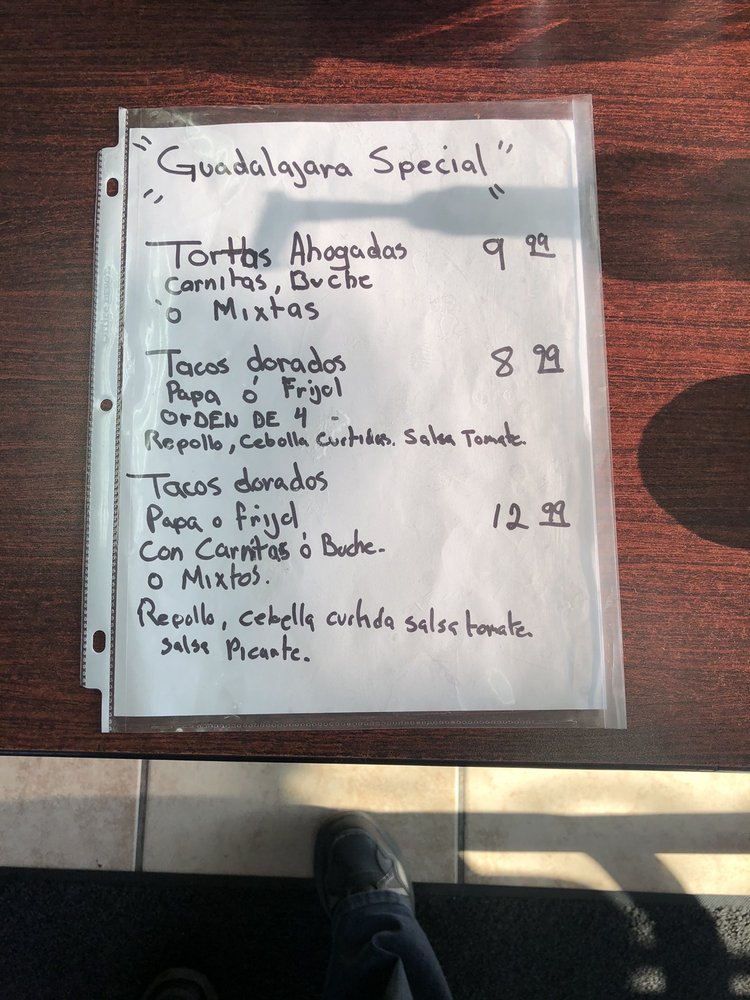 " Guadalajara Special "
" "
Tortas Ahogadas 9 99
Carnitas, Buche
o Mixtas
Tacos dorados 8 99
Papa ó Frijol
ORDEN DE 4 -
Repollo, Cebolla Curtidas. Salsa Tomate.
Tacos dorados
Papa o frijol 12 99
Con Carnitas ó Buche.
o Mixtos.
Repollo, cebella curtida salsa tomate.
Salsa Picante.